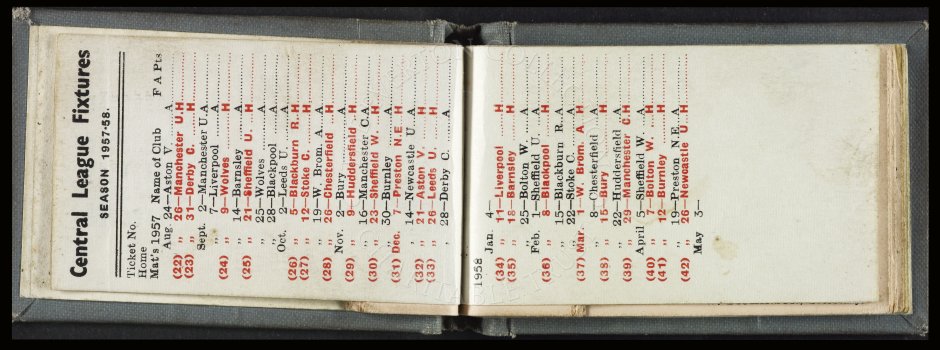 Central League Fixtures
SEASON 1957-58.
Ticket No.
Home
Mat's 1957 Name of Club F A Pts
Aug. 24—Aston V. A
(22) „ 26—Manchester U. H
(23) „ 31—Derby C. H
Sept. 2—Manchester U. A
„ 7—Liverpool A
(24) „ 9—Wolves H
„ 14—Barnsley A
(25) „ 21—Sheffield U. H
„ 25—Wolves A
„ 28—Blackpool A
Oct. 2—Leeds U. A
(26) „ 5—Blackburn R. H
(27) „ 12—Stoke C. H
„ 19—W. Brom. A. A
(28) „ 26—Chesterfield H
Nov. 2—Bury A
(29) „ 9—Huddersfield H
„ 16—Manchester C. A
(30) „ 23—Sheffield W. H
„ 30—Burnley A
(31) Dec. 7—Preston N.E. H
„ 14—Newcastle U. A
(32) „ 21—Aston V. H
(33) „ 26—Leeds U. H
„ 28—Derby C. A
1958
Jan. 4—
(34) „ 11—Liverpool H
(35) „ 18—Barnsley H
„ 25—Bolton W. A
Feb. 1—Sheffield U. A
(36) „ 8—Blackpool H
„ 15—Blackburn R. A
„ 22—Stoke C. A
(37) Mar. 1—W. Brom. A. H
„ 8—Chesterfield A
(38) „ 15—Bury H
„ 22—Huddersfield A
(39) „ 29—Manchester C. H
April 5—Sheffield W. A
(40) „ 7—Bolton W. H
(41) „ 12—Burnley H
„ 19—Preston N.E. A
(42) „ 26—Newcastle U. H
May 3—